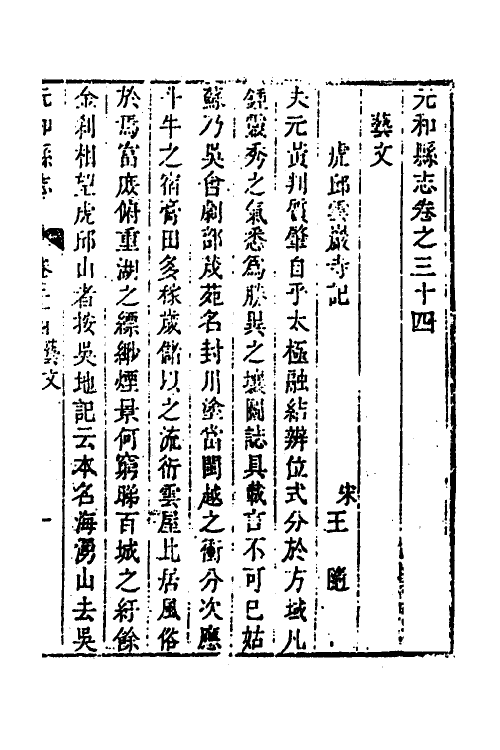 元和縣志卷之三十四
藝文
虎邱雲巖寺記
宋王隨
夫元黃判質肇自乎太極融結辨位式分於方域凡
鍾靈秀之氣悉為勝異之壤圖諜具載言不可已姑
蘇乃吳會劇部茂苑名封川塗當閩越之衝分次應
斗牛之宿膏田多稼歲儲以之流衍雲屋比居風俗
於焉富庶俯重湖之縹緲煙景何窮睇百城之紆餘
金刹相望虎邱山者按吳地記云本名海湧山去吳
元和縣志 卷三十四藝文 一